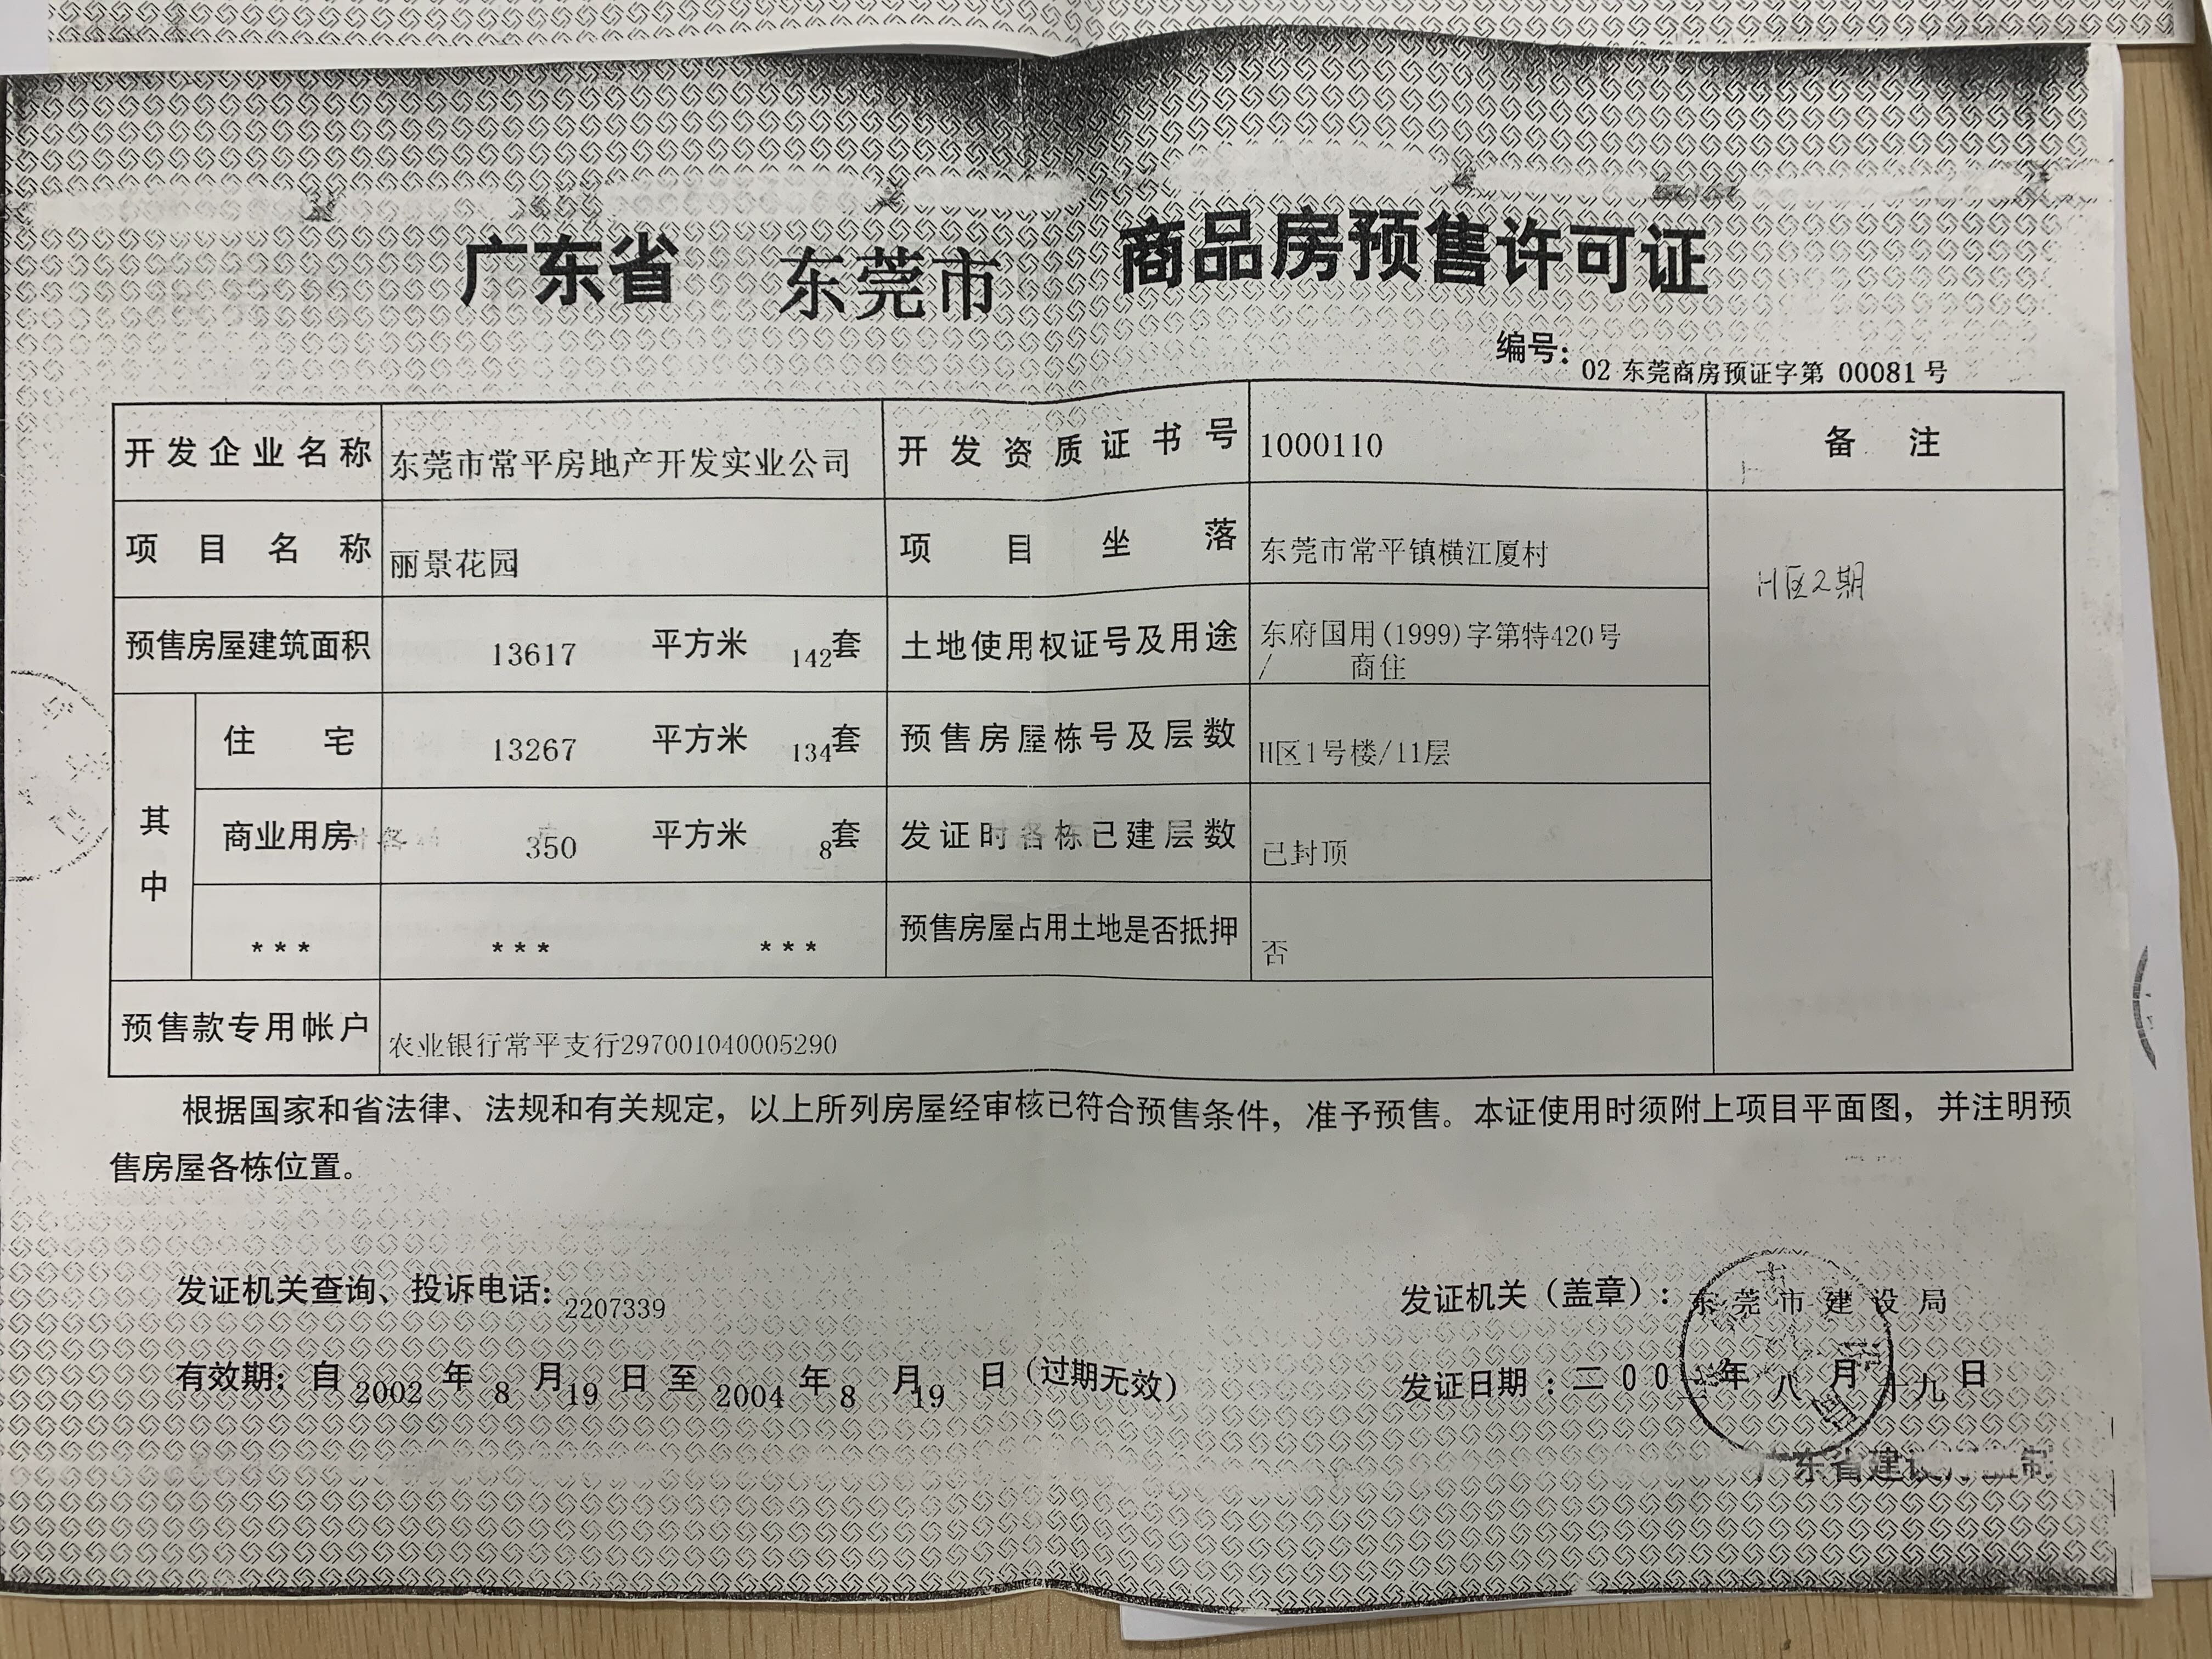 广东省 东莞市 商品房预售许可证
编号: 02 东莞商房预证字第 00081 号
开发企业名称 东莞市常平房地产开发实业公司 开发资质证书号 1000110 备注
项目名称 丽景花园 项目坐落 东莞市常平镇横江厦村
H区2期
预售房屋建筑面积 13617 平方米 142套 土地使用权证号及用途 东府国用(1999)字第特420号
/ 商住
其中
住宅 13267 平方米 134套 预售房屋栋号及层数 H区1号楼/11层
商业用房 350 平方米 8套 发证时各栋已建层数 已封顶
*** *** *** 预售房屋占用土地是否抵押 否
预售款专用帐户 农业银行常平支行297001040005290
根据国家和省法律、法规和有关规定，以上所列房屋经审核已符合预售条件，准予预售。本证使用时须附上项目平面图，并注明预
售房屋各栋位置。
发证机关查询、投诉电话: 2207339 发证机关（盖章）: 东莞市建设局
有效期: 自 2002 年 8 月 19 日 至 2004 年 8 月 19 日（过期无效） 发证日期: 二00 年 八 月 十九 日
广东省建设 制